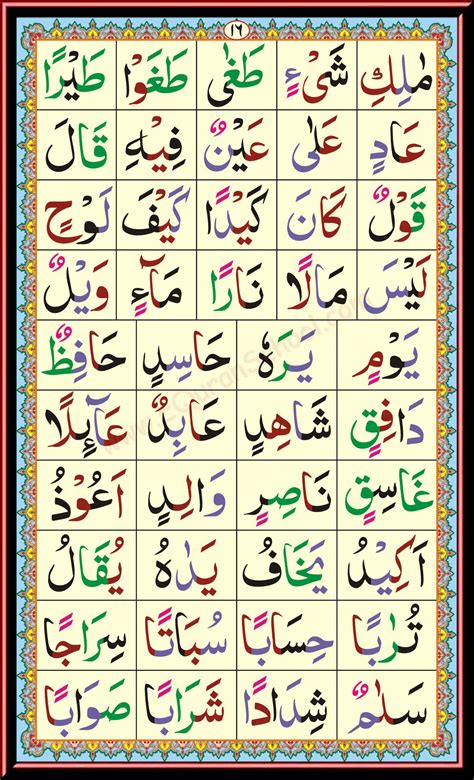 ١٦
مٰلِكِ شَیْءٍ طَغٰی طَغَوْا طَيْرًا
عَادٍ عَلٰی عَيْنٌ فِيْهِ قَالَ
قَوْلٌ كَانَ كَيْدًا كَيْفَ لَوْحٍ
لَيْسَ مَالًا نَارًا مَآءٍ وَيْلٌ
يَوْمٍ يَرَهٗ حَاسِدٍ حَافِظٌ
دَافِقٍ شَاهِدٍ عَابِدٌ عَآئِلًا
غَاسِقٍ نَاصِرٍ وَالِدٍ اَعُوْذُ
اَكِيْدُ يَخَافُ يَدٰهُ يُقَالُ
تُرٰبًا حِسَابًا سُبَاتًا سِرَاجًا
سَلٰمٌ شِدَادًا شَرَابًا صَوَابًا
www.eQuranSchool.com